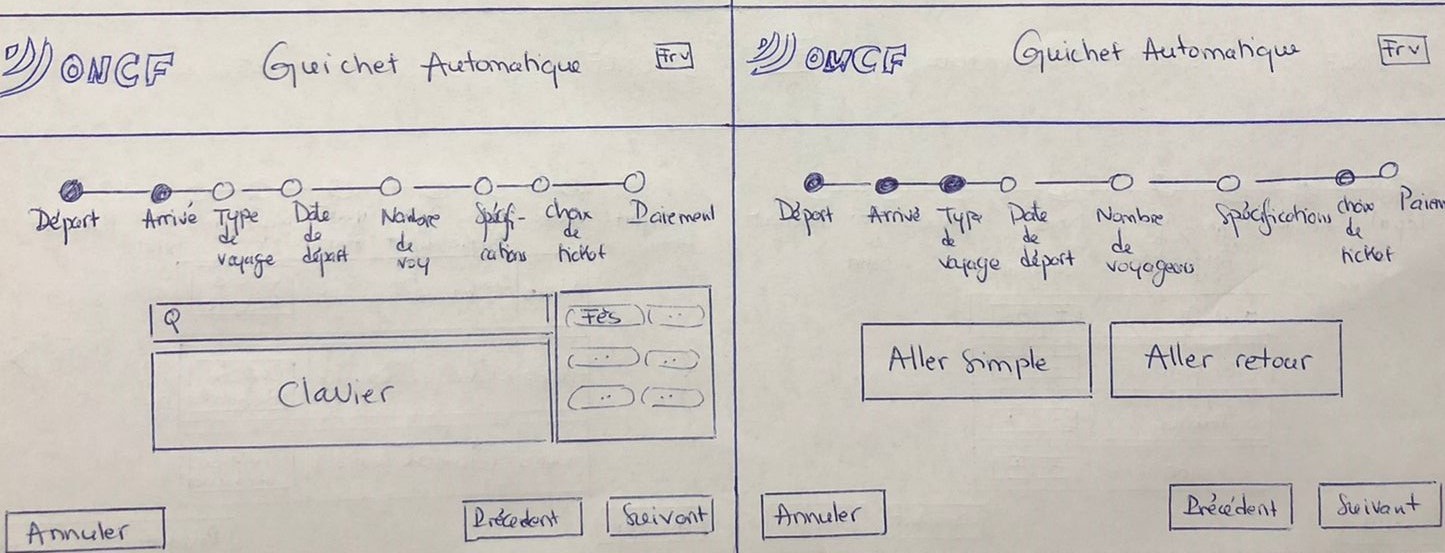 ONCF Guichet Automatique Fr v
Départ Arrivé Type de voyage Date de départ Nombre de voy Spécifi-cations choix de ticket Paiement
Q
Fès
Clavier
Annuler Précédent Suivant
ONCF Guichet Automatique Fr v
Départ Arrivé Type de voyage Date de départ Nombre de voyageurs Spécifications choix de ticket Paiem
Aller simple Aller retour
Annuler Précédent Suivant